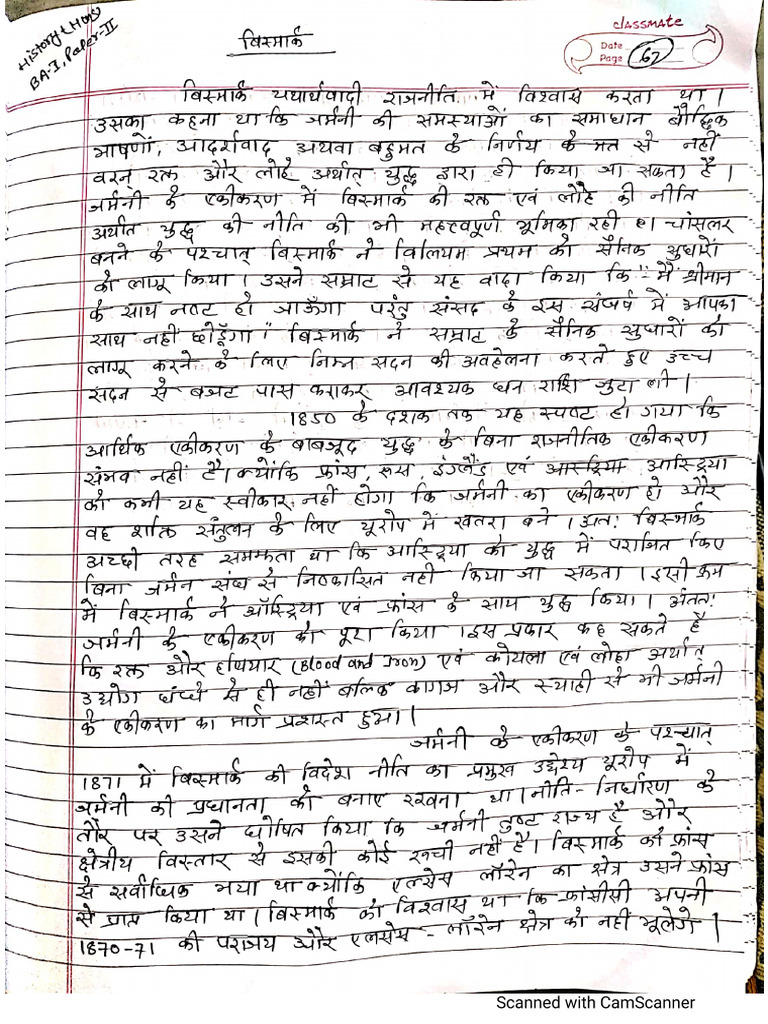 History (Hons)
BA-I, Paper-II
classmate
Date
Page 62
बिस्मार्क
बिस्मार्क यथार्थवादी राजनीति में विश्वास करता था।
उसका कहना था कि जर्मनी की समस्याओं का समाधान बौद्धिक
भाषणों, आदर्शवाद अथवा बहुमत के निर्णय के मत से नहीं
वरन रक्त और लोहे अर्थात् युद्ध द्वारा ही किया जा सकता है।
जर्मनी के एकीकरण में बिस्मार्क की रक्त एवं लौह की नीति
अर्थात युद्ध की नीति की भी महत्त्वपूर्ण भूमिका रही है। चांसलर
बनने के पश्चात् बिस्मार्क ने विलियम प्रथम को सैनिक सुधारों
को लागू किया। उसने सम्राट से यह वादा किया कि "मैं श्रीमान
के साथ नष्ट हो जाऊँगा परंतु संसद के इस संघर्ष में आपका
साथ नहीं छोडूँगा" बिस्मार्क ने सम्राट के सैनिक सुधारों को
लागू करने के लिए निम्न सदन की अवहेलना करते हुए उच्च
सदन से बजट पास कराकर आवश्यक धन राशि जुटा ली।
1850 के दशक तक यह स्पष्ट हो गया कि
आर्थिक एकीकरण के बाबजूद युद्ध के बिना राजनीतिक एकीकरण
संभव नहीं है। क्योंकि फ्रांस, रूस, इंग्लैंड एवं आस्ट्रिया आस्ट्रिया
को कभी यह स्वीकार नहीं होगा कि जर्मनी का एकीकरण हो और
वह शक्ति संतुलन के लिए यूरोप में खतरा बने। अतः बिस्मार्क
अच्छी तरह समझता था कि आस्ट्रिया को युद्ध में पराजित किए
बिना जर्मन संघ से निष्कासित नही किया जा सकता। इसी क्रम
में बिस्मार्क ने ऑस्ट्रिया एवं फ्रांस के साथ युद्ध किया। अंततः
जर्मनी के एकीकरण को पूरा किया। इस प्रकार कह सकते है
कि रक्त और हथियार (Blood and Iron) एवं कोयला एवं लोहा अर्थात्
उद्योग धंधे से ही नहीं बल्कि कागज और स्याही से भी जर्मनी
के एकीकरण का मार्ग प्रशस्त हुआ।
जर्मनी के एकीकरण के पश्चात्
1871 में बिस्मार्क की विदेश नीति का प्रमुख उद्देश्य यूरोप में
जर्मनी की प्रधानता को बनाए रखना था। नीति-निर्धारण के
तौर पर उसने घोषित किया कि जर्मनी तुष्ट राज्य है और
क्षेत्रीय विस्तार से इसकी कोई रूची नहीं है। बिस्मार्क को फ्रांस
से सर्वाधिक भय था क्योंकि एल्सेस लॉरेन का क्षेत्र उसने फ्रांस
से प्राप्त किया था। बिस्मार्क को विश्वास था कि फ्रांसीसी अपनी
1870-71 की पराजय और एलसेस-लॉरेन क्षेत्र को नहीं भूलेगे।
Scanned with CamScanner